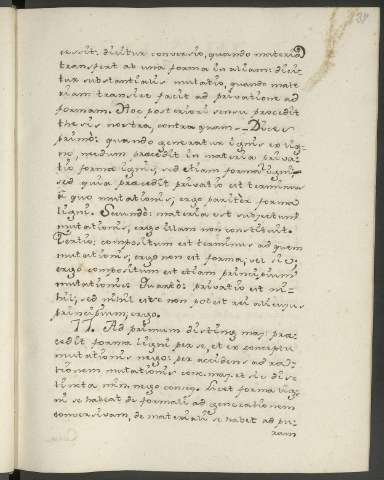 38
cessit: dicitur conversio, quando materia
transfert ab una forma in aliam: dicit
tur substantialis mutatio, quando mate
riam transire facit ad privatione ad
formam. Hoc posteriori sensu procedit
thesis nostra, contra quam — Dices
primò: quando generatur ignis ex lig-
no, nedum præcedit in materia priva-
tio formæ ignis, sed etiam forma ligni,
sed quia præcedit privatio est terminus
à quo mutationis, ergo pariter forma
ligni. Secundò: materia est subjectum
mutationis, ergo illam non constituit.
Tertio: compositum est terminus ad quem
mutationis, ergo non est forma, vel sic:
ergo compositum est etiam principium
mutationis. Quartò: privatio est ni-
hil, sed nihil esse non potest rei alicujus
principium, ergo.
11. Ad primum disting. maj. præ-
cedit forma ligni per se, et ex conceptu
mutationis nego: per accidens ad rati-
tionem mutationis conc. maj. et sic dis-
tincta min. nego conseq. Licet forma lig-
ni se habeat de formali ad generationem
conversivam, de materiali se habet ad pu-
ram